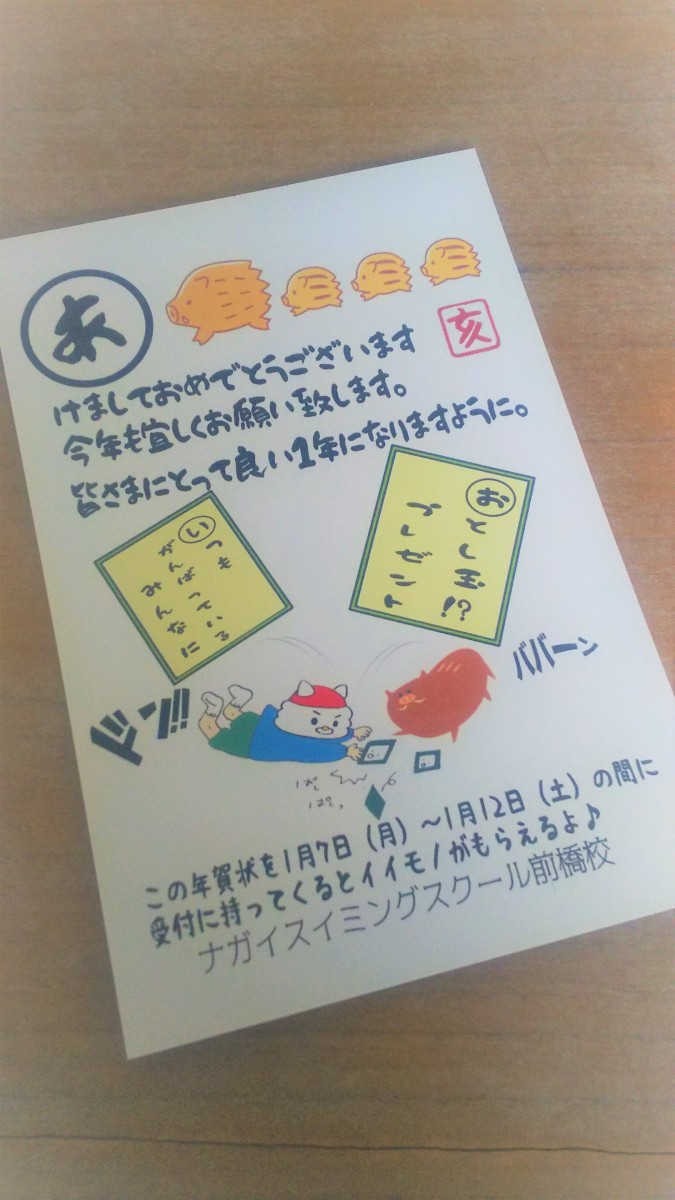 あ
亥
けましておめでとうございます
今年も宜しくお願い致します。
皆さまにとって良い1年になりますように。
おとし玉!?
プレゼント
いつも
がんばっている
みんなに
ババーン
ドン!!
この年賀状を1月7日(月)~1月12日(土)の間に
受付に持ってくるとイイモノがもらえるよ♪
ナガイスイミングスクール前橋校